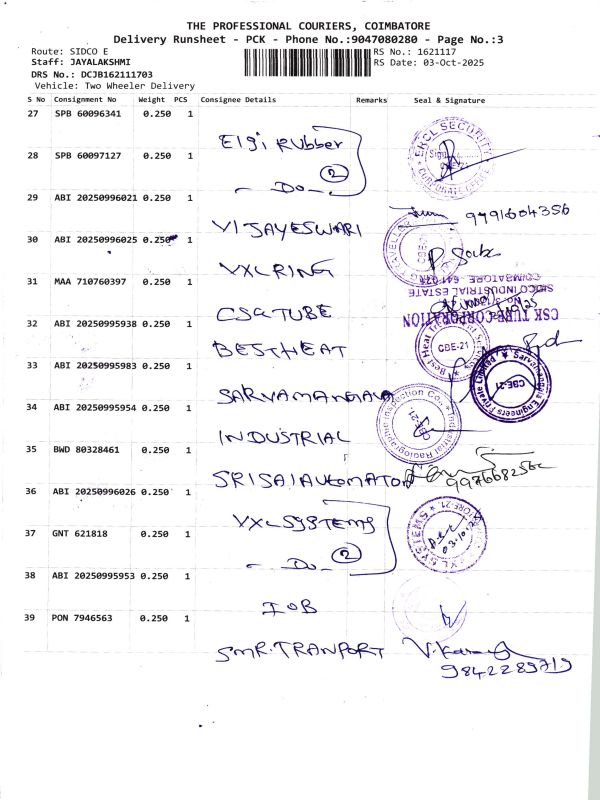 THE PROFESSIONAL COURIERS, COIMBATORE
Delivery Runsheet - PCK - Phone No.:9047080280 - Page No.:3
Route: SIDCO E RS No.: 1621117
Staff: JAYALAKSHMI RS Date: 03-Oct-2025
DRS No.: DCJB162111703
Vehicle: Two Wheeler Delivery
S No Consignment No Weight PCS Consignee Details Remarks Seal & Signature
27 SPB 60096341 0.250 1
Elgi Rubber
SRCL SECURITY
CORPORATE OFFICE
28 SPB 60097127 0.250 1
2
- Do -
29 ABI 20250996021 0.250 1
VIJAYESWARI
30 ABI 20250996025 0.250 1
CBE-21
VXL RING
31 MAA 710760397 0.250 1
CSK TUBE CORPORATION
SIDCO INDUSTRIAL ESTATE
COIMBATORE
CSK TUBE
32 ABI 20250995938 0.250 1
BEST HEAT
CBE-21
33 ABI 20250995983 0.250 1
Sarvamangala Engineers Private Limited
CBE-21
SARVAMANGALA
34 ABI 20250995954 0.250 1
Industrial Radiographic Inspection Co.
CBE-21
INDUSTRIAL
35 BWD 80328461 0.250 1
SRISAI AUTOMATION
36 ABI 20250996026 0.250 1
VXL SYSTEMS
37 GNT 621818 0.250 1
2
- Do -
38 ABI 20250995953 0.250 1
IOB
39 PON 7946563 0.250 1
SMR. TRANPORT
9842289719